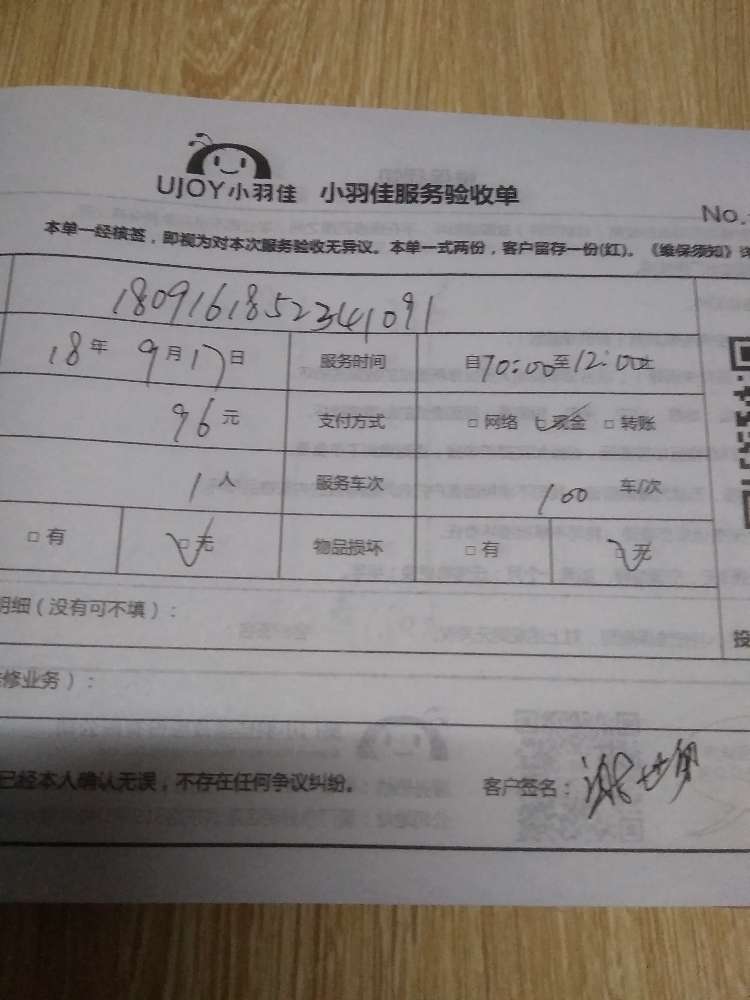 UJOY小羽佳 小羽佳服务验收单
No.
本单一经核签，即视为对本次服务验收无异议。本单一式两份，客户留存一份(红)。《维保须知》详
1809161852341091
18年 9月17日 服务时间 自10:00至12:00止
96元 支付方式 □网络 ☑现金 □转账
1人 服务车次 100 车/次
□有 ☑无 物品损坏 □有 ☑无
明细（没有可不填）：
投
修业务）：
已经本人确认无误，不存在任何争议纠纷。 客户签名：